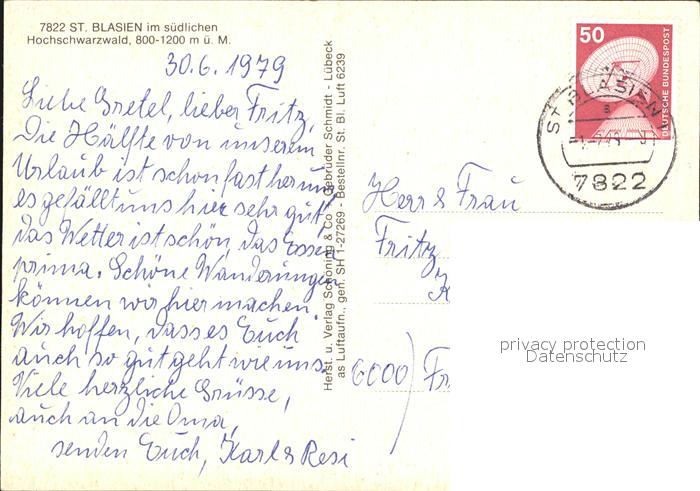 7822 ST. BLASIEN im südlichen
Hochschwarzwald, 800-1200 m ü. M.
30.6.1979
Liebe Gretel, lieber Fritz,
Die Hälfte von unserem
Urlaub ist schon fast herum,
es gefällt uns hier sehr gut,
das Wetter ist schön, das Essen
prima. Schöne Wanderungen
können wir hier machen.
Wir hoffen, dass es Euch
auch so gut geht wie uns.
Viele herzliche Grüsse,
auch an die Oma,
senden Euch, Karl & Resi
Herst. u. Verlag Schöning & Co · Gebrüder Schmidt - Lübeck
as Luftaufn., gen. SH 1-27269 - Bestellnr. St. Bl. Luft 6239
50
DEUTSCHE BUNDESPOST
ST. BLASIEN
7822
Herr & Frau
Fritz
K
6000 Fr
privacy protection
Datenschutz